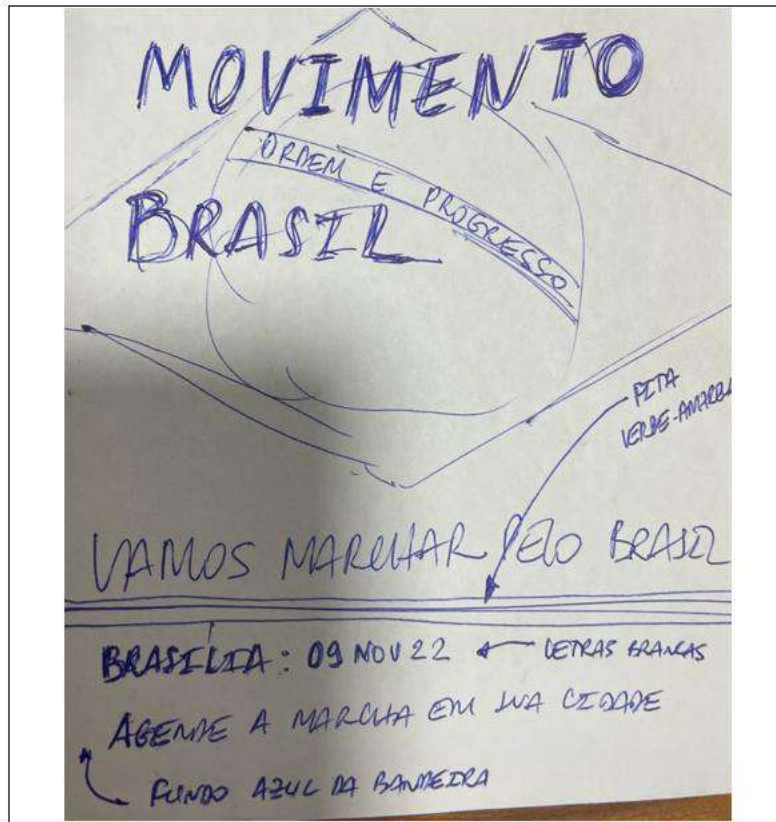 MOVIMENTO
ORDEM E PROGRESSO
BRASIL
FITA
VERDE-AMARELA
VAMOS MARCHAR PELO BRASIL
BRASÍLIA: 09 NOV 22 LETRAS BRANCAS
AGENDE A MARCHA EM SUA CIDADE
FUNDO AZUL DA BANDEIRA